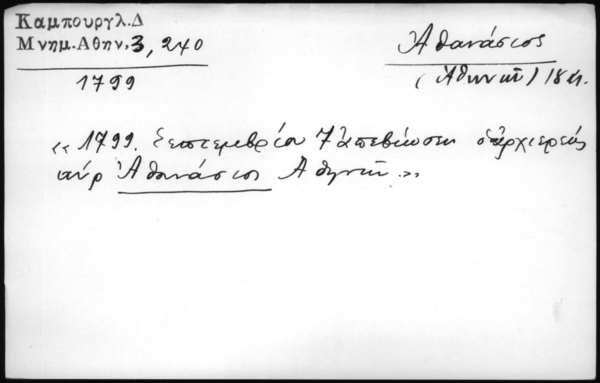 Καμπουργλ.Δ
Μνημ.Αθην.3, 240
1799
Ἀθανάσιος
(Ἀθηνῶν) 18
« 1799. Σεπτεμβρίου 7 ἀπεβίωσεν ὁ ἀρχιερεύς
κύρ Ἀθανάσιος Ἀθηνῶν.»